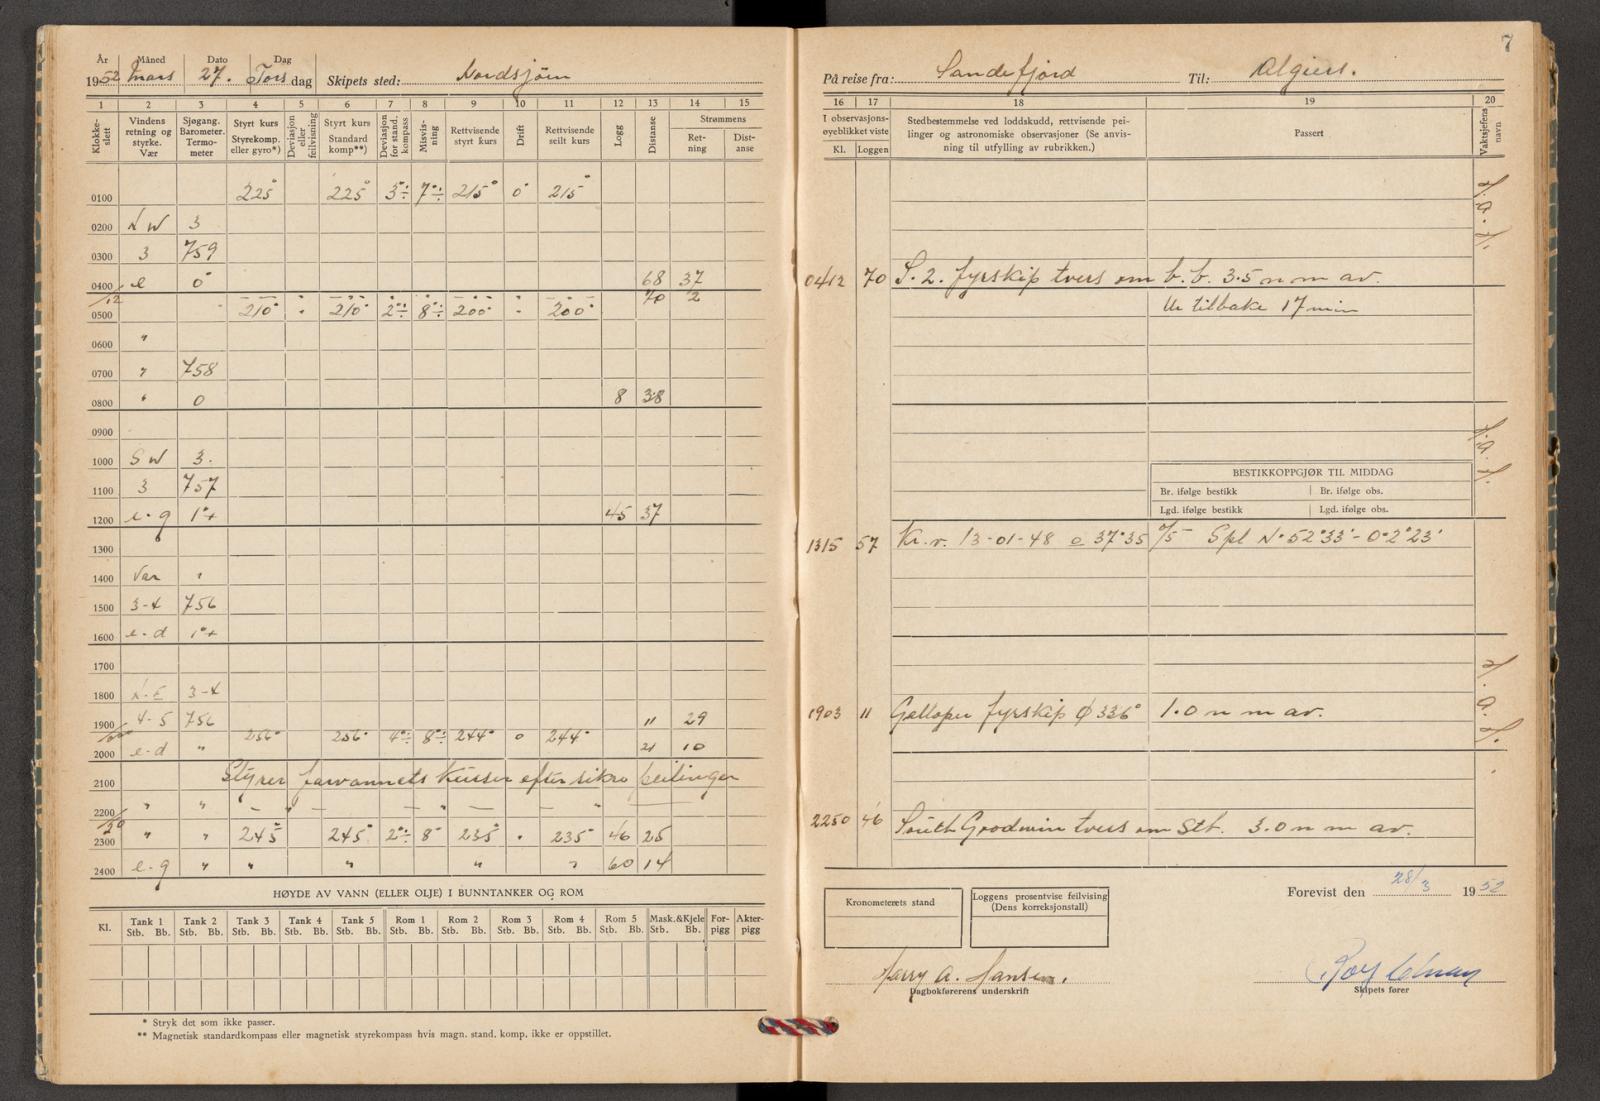 År Måned Dato Dag
1952 Mars 27. Tors dag Skipets sted: Nordsjøen
1 2 3 4 5 6 7 8 9 10 11 12 13 14 15
Klokkeslett
Vindens retning og styrke. Vær
Sjøgang. Barometer. Termometer
Styrt kurs Styrekomp. eller gyro*)
Deviasjon eller feilvisning
Styrt kurs Standard komp**)
Deviasjon for stand. kompass
Misvisning
Rettvisende styrt kurs
Drift
Rettvisende seilt kurs
Logg
Distanse
Strømmens
Retning
Distanse
0100 225° 225° 3°÷ 7°÷ 215° 0° 215°
0200 N W 3
0300 3 759
0400 e 0° 68 37
/12 70 2
0500 210° " 210° 2°÷ 8°÷ 200° " 200°
0600 "
0700 " 758
0800 " 0 8 38
0900
1000 S W 3.
1100 3 757
1200 e.g 1°+ 45 37
1300
1400 Var "
1500 3-4 756
1600 e-d 1°+
1700
1800 N.E 3-4
1900 4-5 756 11 29
256° 256° 4°÷ 8°÷ 244° 0 244°
2000 e-d " 21 10
2100 Styrer farvannets kurser efter sikre peilinger
2200 " " — " — — " — " —
/50
2300 " " 245° 245° 2°÷ 8° 235° " 235° 46 25
2400 e.g " " " " " 60 14
HØYDE AV VANN (ELLER OLJE) I BUNNTANKER OG ROM
Kl. Tank 1 Tank 2 Tank 3 Tank 4 Tank 5 Rom 1 Rom 2 Rom 3 Rom 4 Rom 5 Mask.&Kjele For-pigg Akter-pigg
Stb. Bb. Stb. Bb. Stb. Bb. Stb. Bb. Stb. Bb. Stb. Bb. Stb. Bb. Stb. Bb. Stb. Bb. Stb. Bb. Stb. Bb.
* Stryk det som ikke passer.
** Magnetisk standardkompass eller magnetisk styrekompass hvis magn. stand. komp. ikke er oppstillet.
7
På reise fra: Sandefjord Til: Algiers.
16 17 18 19 20
I observasjons-
øyeblikket viste
Kl. Loggen
Stedbestemmelse ved loddskudd, rettvisende pei-
linger og astronomiske observasjoner (Se anvis-
ning til utfylling av rubrikken.)
Passert
Vaktsjefens navn
H.A.H.
0412 70 S.2. fyrskip tvers om b.b. 3.5 n m av.
Ur tilbake 17 min
H.A.H.
BESTIKKOPPGJØR TIL MIDDAG
Br. ifølge bestikk Br. ifølge obs.
Lgd. ifølge bestikk Lgd. ifølge obs.
1315 57 Kr.v. 13-01-48 o 37°35 o/5 Spl N°52°33' - O°2°23'
H.A.H.
1903 11 Galloper fyrskip ϕ 336° 1.0 n m av.
2250 46 South Goodwin tvers om Stb. 3.0 n m av.
Kronometerets stand
Loggens prosentvise feilvisning
(Dens korreksjonstall)
Forevist den 28/3 1952
Harry A. Hansen.
Dagbokførerens underskrift
Skipets fører